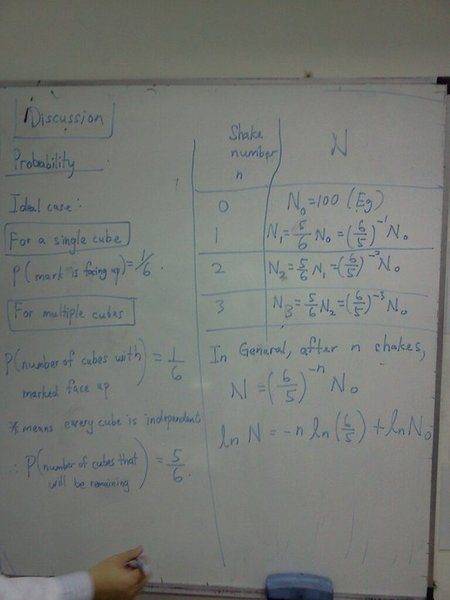 Discussion
Probability
Ideal case:
For a single cube
P(mark is facing up) = 1/6.
For multiple cubes
P(number of cubes with marked face up) = 1/6
* means every cube is independent
∴ P(number of cubes that will be remaining) = 5/6.
Shake number n | N
0 | N₀=100 (Eg)
1 | N₁=5/6 N₀=(6/5)⁻¹N₀
2 | N₂=5/6 N₁=(6/5)⁻²N₀
3 | N₃=5/6 N₂=(6/5)⁻³N₀
In General, after n shakes,
N=(6/5)⁻ⁿ N₀
ln N = -n ln(6/5) + ln N₀